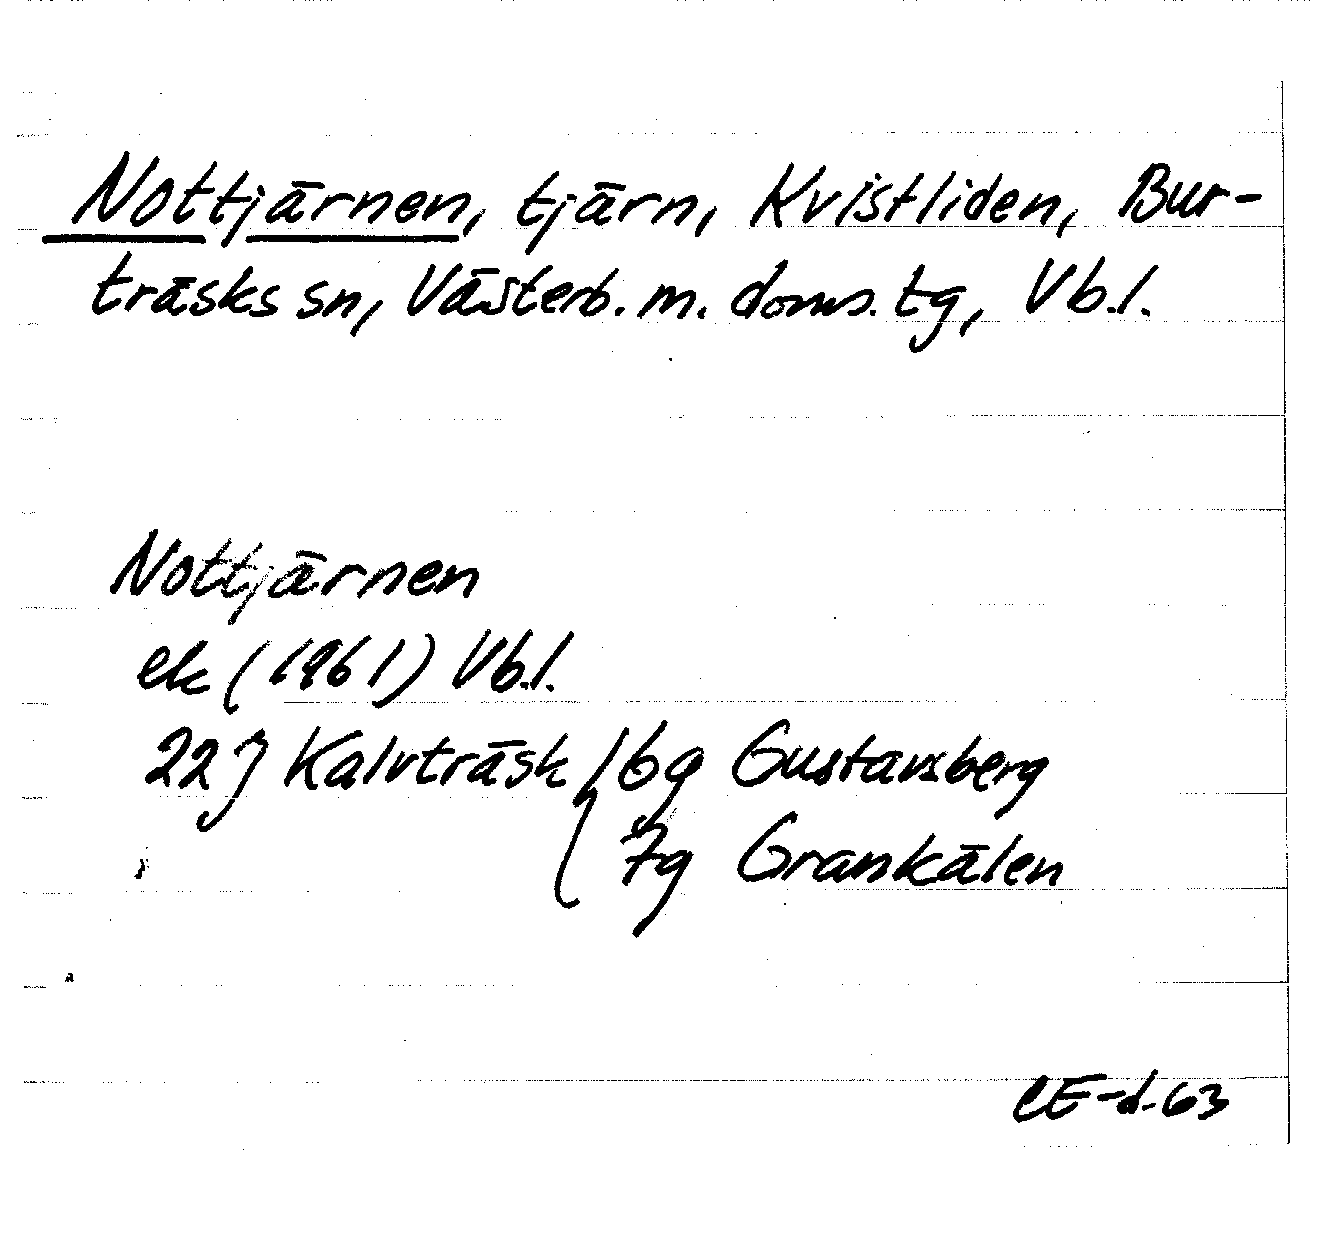 Nottjärnen, tjärn, Kvistliden, Bur-
träsks sn, Västerb. m. doms. tg, Vb.l.
Nottjärnen
ek (1961) Vb.l.
22 J Kalvträsk / 6g Gustavsberg
7g Grankålen
CE-d-63